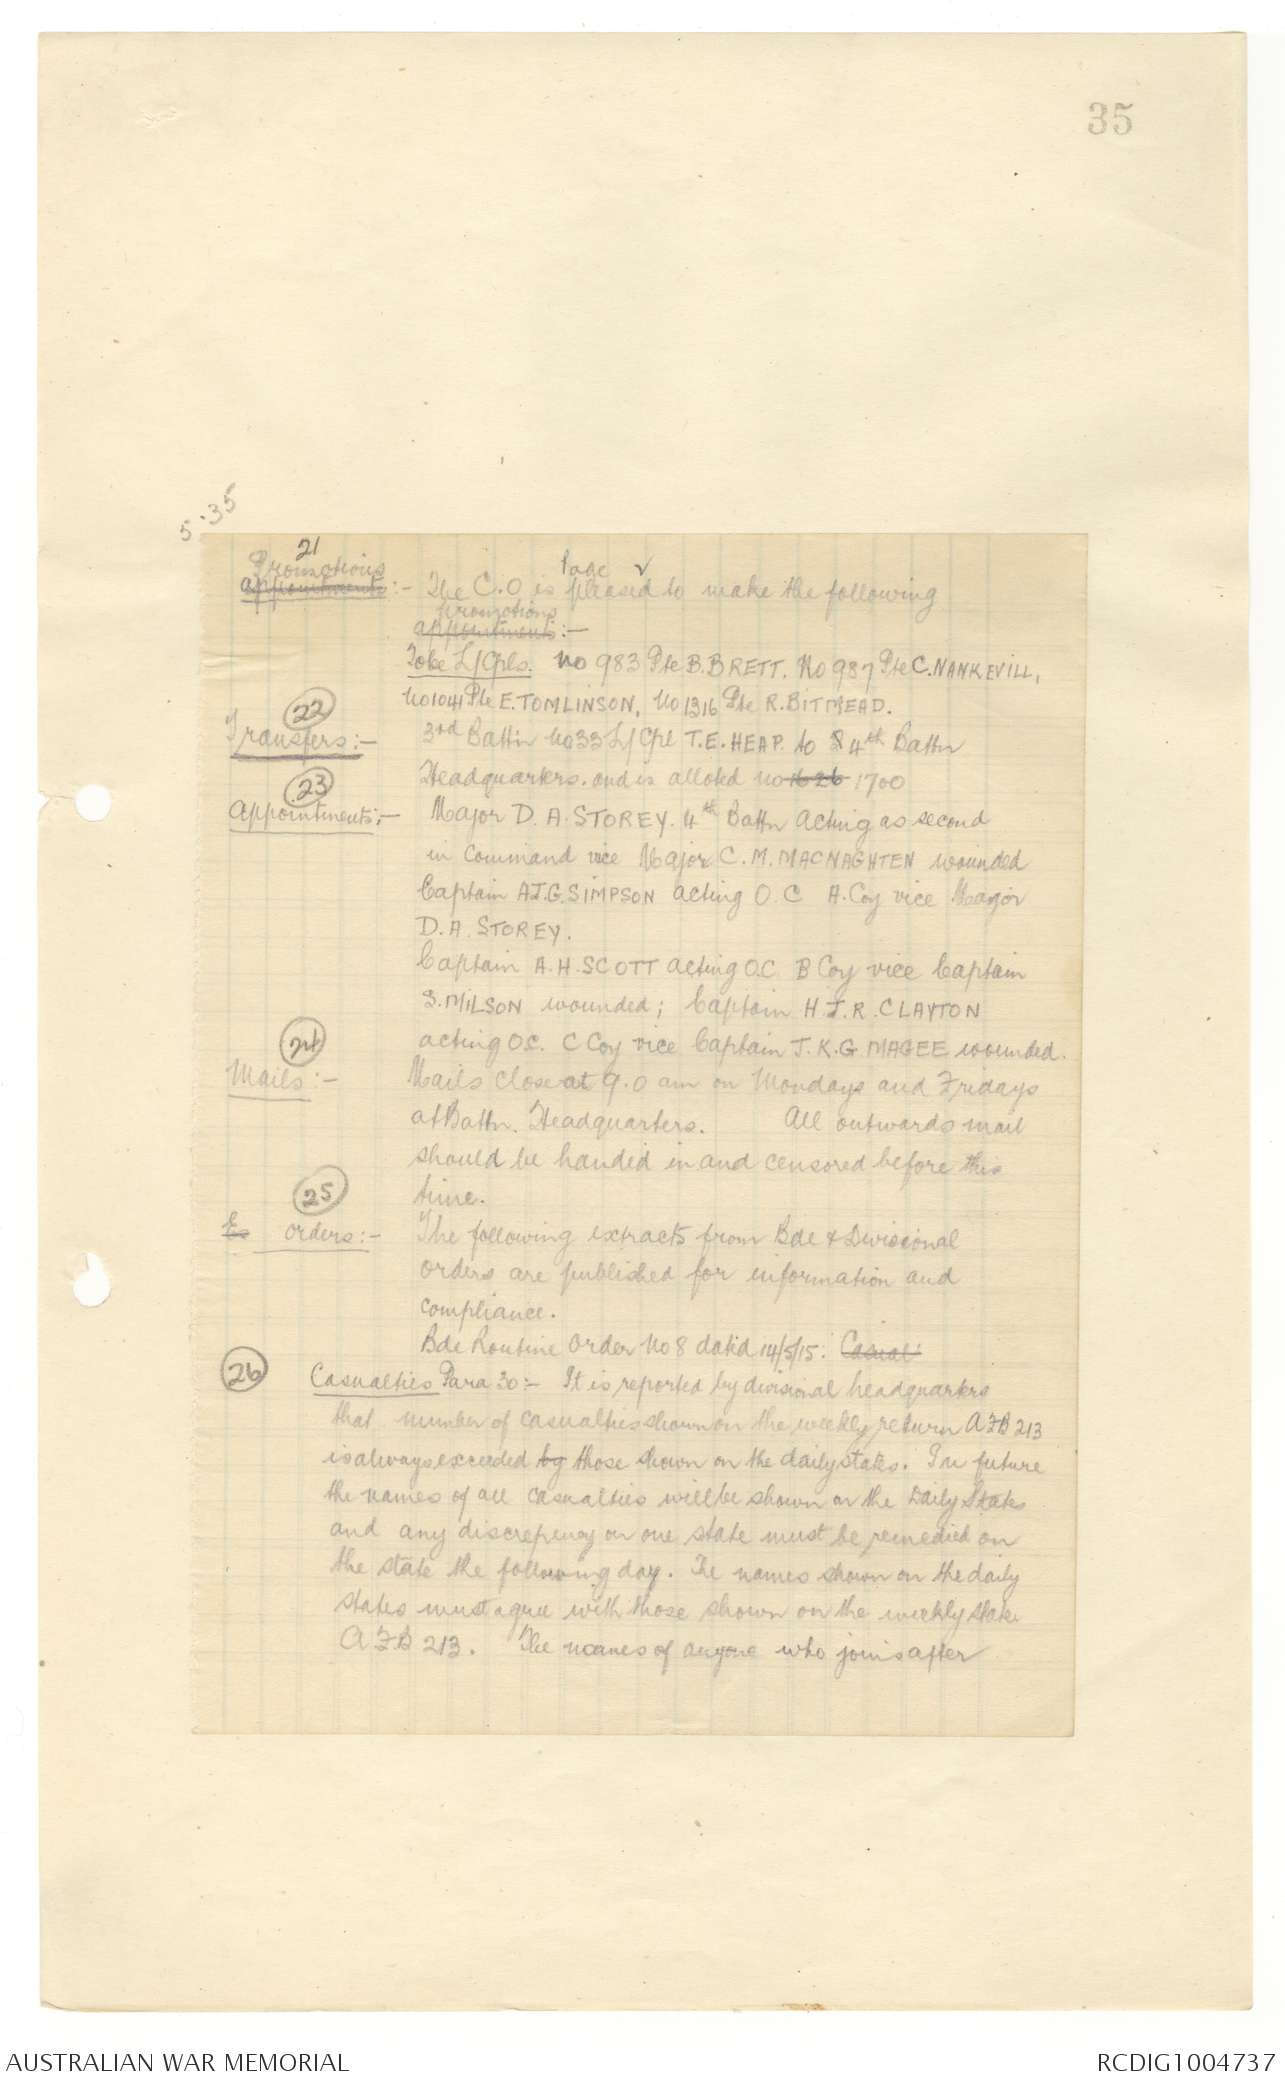 35
5.35
21
Page v
Promotions
appointments :- The C.O is pleased to make the following
promotions
appointments :-
To be L/Cpls. No 983 Pte B. BRETT. No 987 Pte C. NANKEVILL,
No 1041 Pte E. TOMLINSON, No 1316 Pte R. BITMEAD.
22
Transfers :- 3rd Battn No 33 L/Cpl T.E. HEAP to 4th Battn
Headquarters. and is alloted No 1626 1700
23
Appointments :- Major D. A. STOREY. 4th Battn acting as second
in command vice Major C. M. MACNAGHTEN wounded
Captain A.J.G. SIMPSON acting O.C A. Coy vice Major
D. A. STOREY.
Captain A. H. SCOTT acting O.C. B Coy vice Captain
S. MILSON wounded; Captain H. J. R. CLAYTON
acting O.C. C Coy vice Captain J. K. G. MAGEE wounded.
24
Mails :- Mails close at 9.0 am on Mondays and Fridays
at Battn. Headquarters. All outwards mail
should be handed in and censored before this
time.
25
Ex orders :- The following extracts from Bde & Divisional
orders are published for information and
compliance.
Bde Routine Order No 8 datid 14/5/15: Casual
26 Casualties Para 30 :- It is reported by divisional headquarters
that number of casualties shown on the weekly return A F B 213
is always exceeded by those shown on the daily states. In future
the names of all casualties will be shown on the Daily States
and any discrepency on one state must be remedied on
the state the following day. The names shown on the daily
states must agree with those shown on the weekly state
A F B 213. The names of anyone who joins after
AUSTRALIAN WAR MEMORIAL
RCDIG1004737